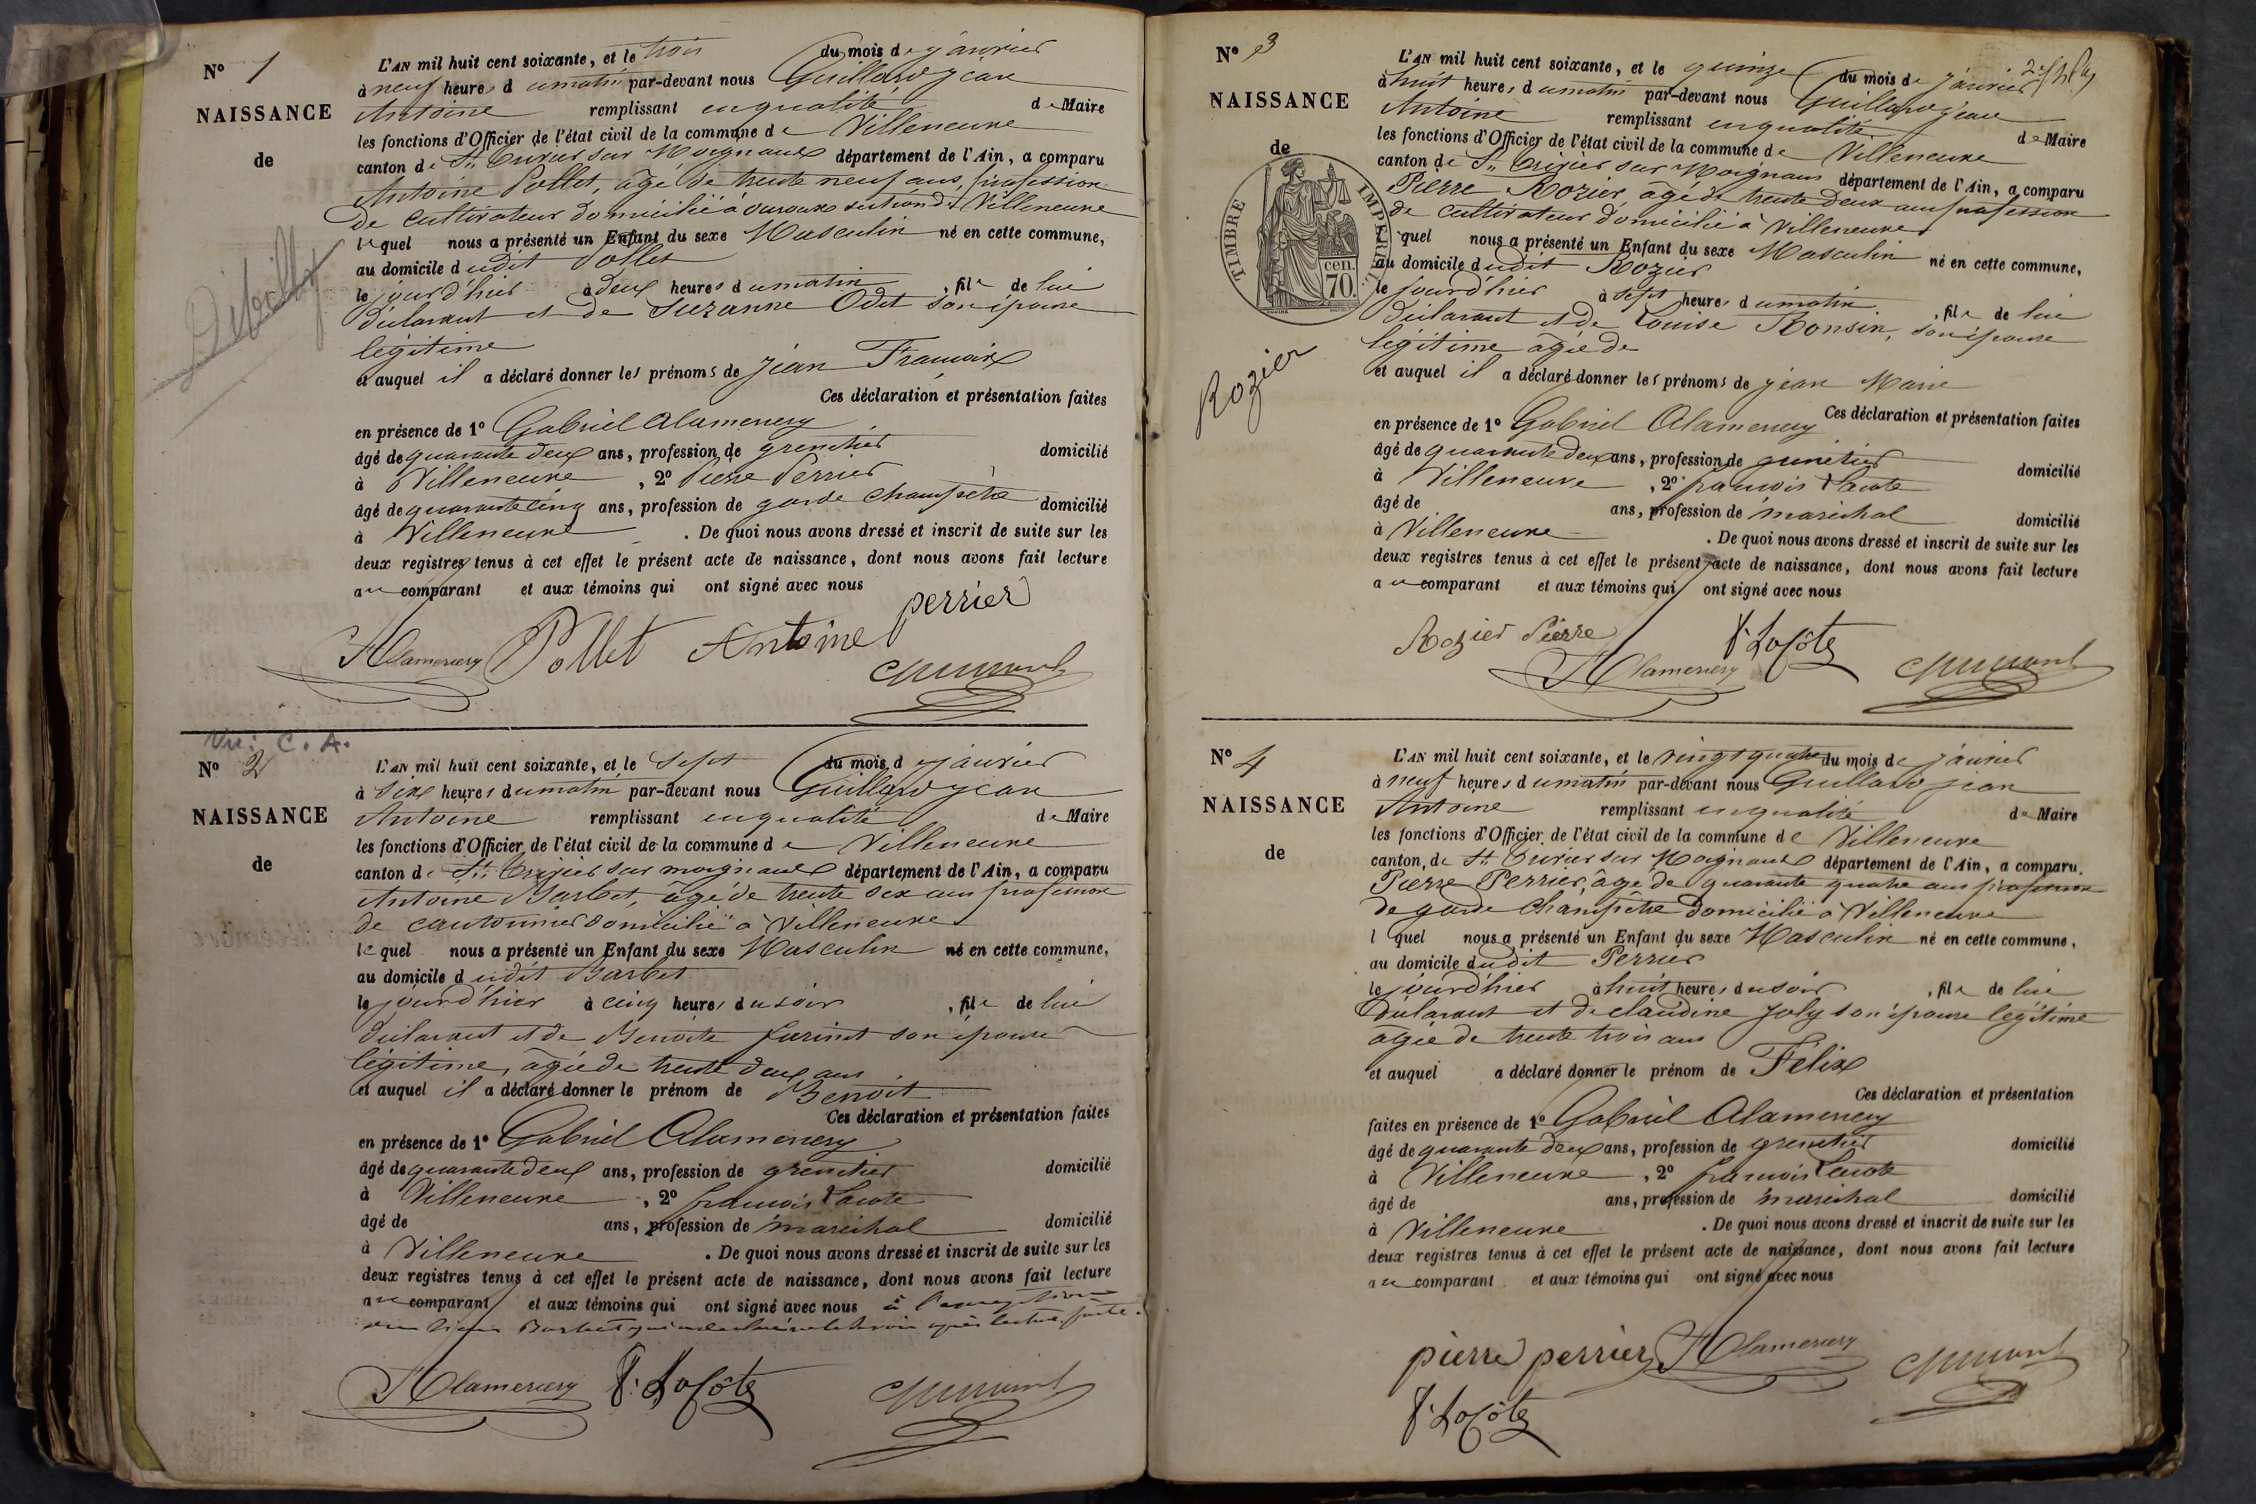 N° 1
NAISSANCE
de
L'AN mil huit cent soixante, et le trois du mois de janvier
à neuf heures du matin par-devant nous Guillard jean
Antoine remplissant en qualité de Maire
les fonctions d'Officier de l'état civil de la commune de Villeneuve
canton de St Trivier sur Moignans département de l'Ain, a comparu
Antoine Pollet, âgé de trente neuf ans, profession
de cultivateur domicilié à ouroux section de Villeneuve
lequel nous a présenté un Enfant du sexe Masculin né en cette commune,
au domicile dudit Pollet
le jourd'hier à deux heures du matin, fils de lui
déclarant et de Suzanne Odet son épouse
légitime
et auquel il a déclaré donner les prénoms de jean François
Ces déclaration et présentation faites
en présence de 1° Gabriel Alamercery
âgé de quarante deux ans, profession de grenetier domicilié
à Villeneuve, 2° Pierre Perrier
âgé de quarante cinq ans, profession de garde champêtre domicilié
à Villeneuve. De quoi nous avons dressé et inscrit de suite sur les
deux registres tenus à cet effet le présent acte de naissance, dont nous avons fait lecture
au comparant et aux témoins qui ont signé avec nous
perrier
Alamercery Pollet Antoine
Vu: C. A.
N° 2
NAISSANCE
de
L'AN mil huit cent soixante, et le sept du mois de janvier
à six heures du matin par-devant nous Guillard jean
Antoine remplissant en qualité de Maire
les fonctions d'Officier de l'état civil de la commune de Villeneuve
canton de St Trivier sur moignans département de l'Ain, a comparu
Antoine Barbet, âgé de trente six ans profession
de cantonnier domicilié à Villeneuve
lequel nous a présenté un Enfant du sexe Masculin né en cette commune,
au domicile dudit Barbet
le jourd'hier à cinq heures du soir, fils de lui
déclarant et de Benoite son épouse
légitime, âgée de trente deux ans
et auquel il a déclaré donner le prénom de Benoit
Ces déclaration et présentation faites
en présence de 1° Gabriel Alamercery
âgé de quarante deux ans, profession de grenetier domicilié
à Villeneuve, 2° françois Lacote
âgé de ans, profession de maréchal domicilié
à Villeneuve. De quoi nous avons dressé et inscrit de suite sur les
deux registres tenus à cet effet le présent acte de naissance, dont nous avons fait lecture
au comparant et aux témoins qui ont signé avec nous à l'exception
Barbet après lecture faite.
Alamercery F. Lacôte
N° 3
NAISSANCE
de
TIMBRE IMPERIAL
70 cen.
Rozier
L'AN mil huit cent soixante, et le quinze du mois de janvier
à huit heures du matin par-devant nous Guillard jean
Antoine remplissant en qualité de Maire
les fonctions d'Officier de l'état civil de la commune de Villeneuve
canton de St Trivier sur Moignans département de l'Ain, a comparu
Pierre Rozier, âgé de trente deux ans profession
de cultivateur domicilié à Villeneuve
quel nous a présenté un Enfant du sexe Masculin né en cette commune,
au domicile dudit Rozier
le jourd'hier à sept heures du matin, fils de lui
déclarant et de Louise Ronsin, son épouse
légitime âgée de
et auquel il a déclaré donner les prénoms de jean Marie
Ces déclaration et présentation faites
en présence de 1° Gabriel Alamercery
âgé de quarante deux ans, profession de grenetier domicilié
à Villeneuve, 2° françois Lacote
âgé de ans, profession de maréchal domicilié
à Villeneuve. De quoi nous avons dressé et inscrit de suite sur les
deux registres tenus à cet effet le présent acte de naissance, dont nous avons fait lecture
au comparant et aux témoins qui ont signé avec nous
Rozier Pierre F. Lacôte
Alamercery
N° 4
NAISSANCE
de
L'AN mil huit cent soixante, et le vingt quatre du mois de janvier
à neuf heures du matin par-devant nous Guillard jean
Antoine remplissant en qualité de Maire
les fonctions d'Officier de l'état civil de la commune de Villeneuve
canton de St Trivier sur Moignans département de l'Ain, a comparu.
Pierre Perrier, âgé de quarante quatre ans profession
de garde champêtre domicilié à Villeneuve
l quel nous a présenté un Enfant du sexe Masculin né en cette commune,
au domicile dudit Perrier
le jourd'hier à huit heures du soir, fils de lui
déclarant et de claudine Joly son épouse légitime
âgée de trente trois ans
et auquel a déclaré donner le prénom de Félix
Ces déclaration et présentation
faites en présence de 1° Gabriel Alamercery
âgé de quarante deux ans, profession de grenetier domicilié
à Villeneuve, 2° françois Lacote
âgé de ans, profession de maréchal domicilié
à Villeneuve. De quoi nous avons dressé et inscrit de suite sur les
deux registres tenus à cet effet le présent acte de naissance, dont nous avons fait lecture
au comparant et aux témoins qui ont signé avec nous
pierre perrier Alamercery
F. Lacôte